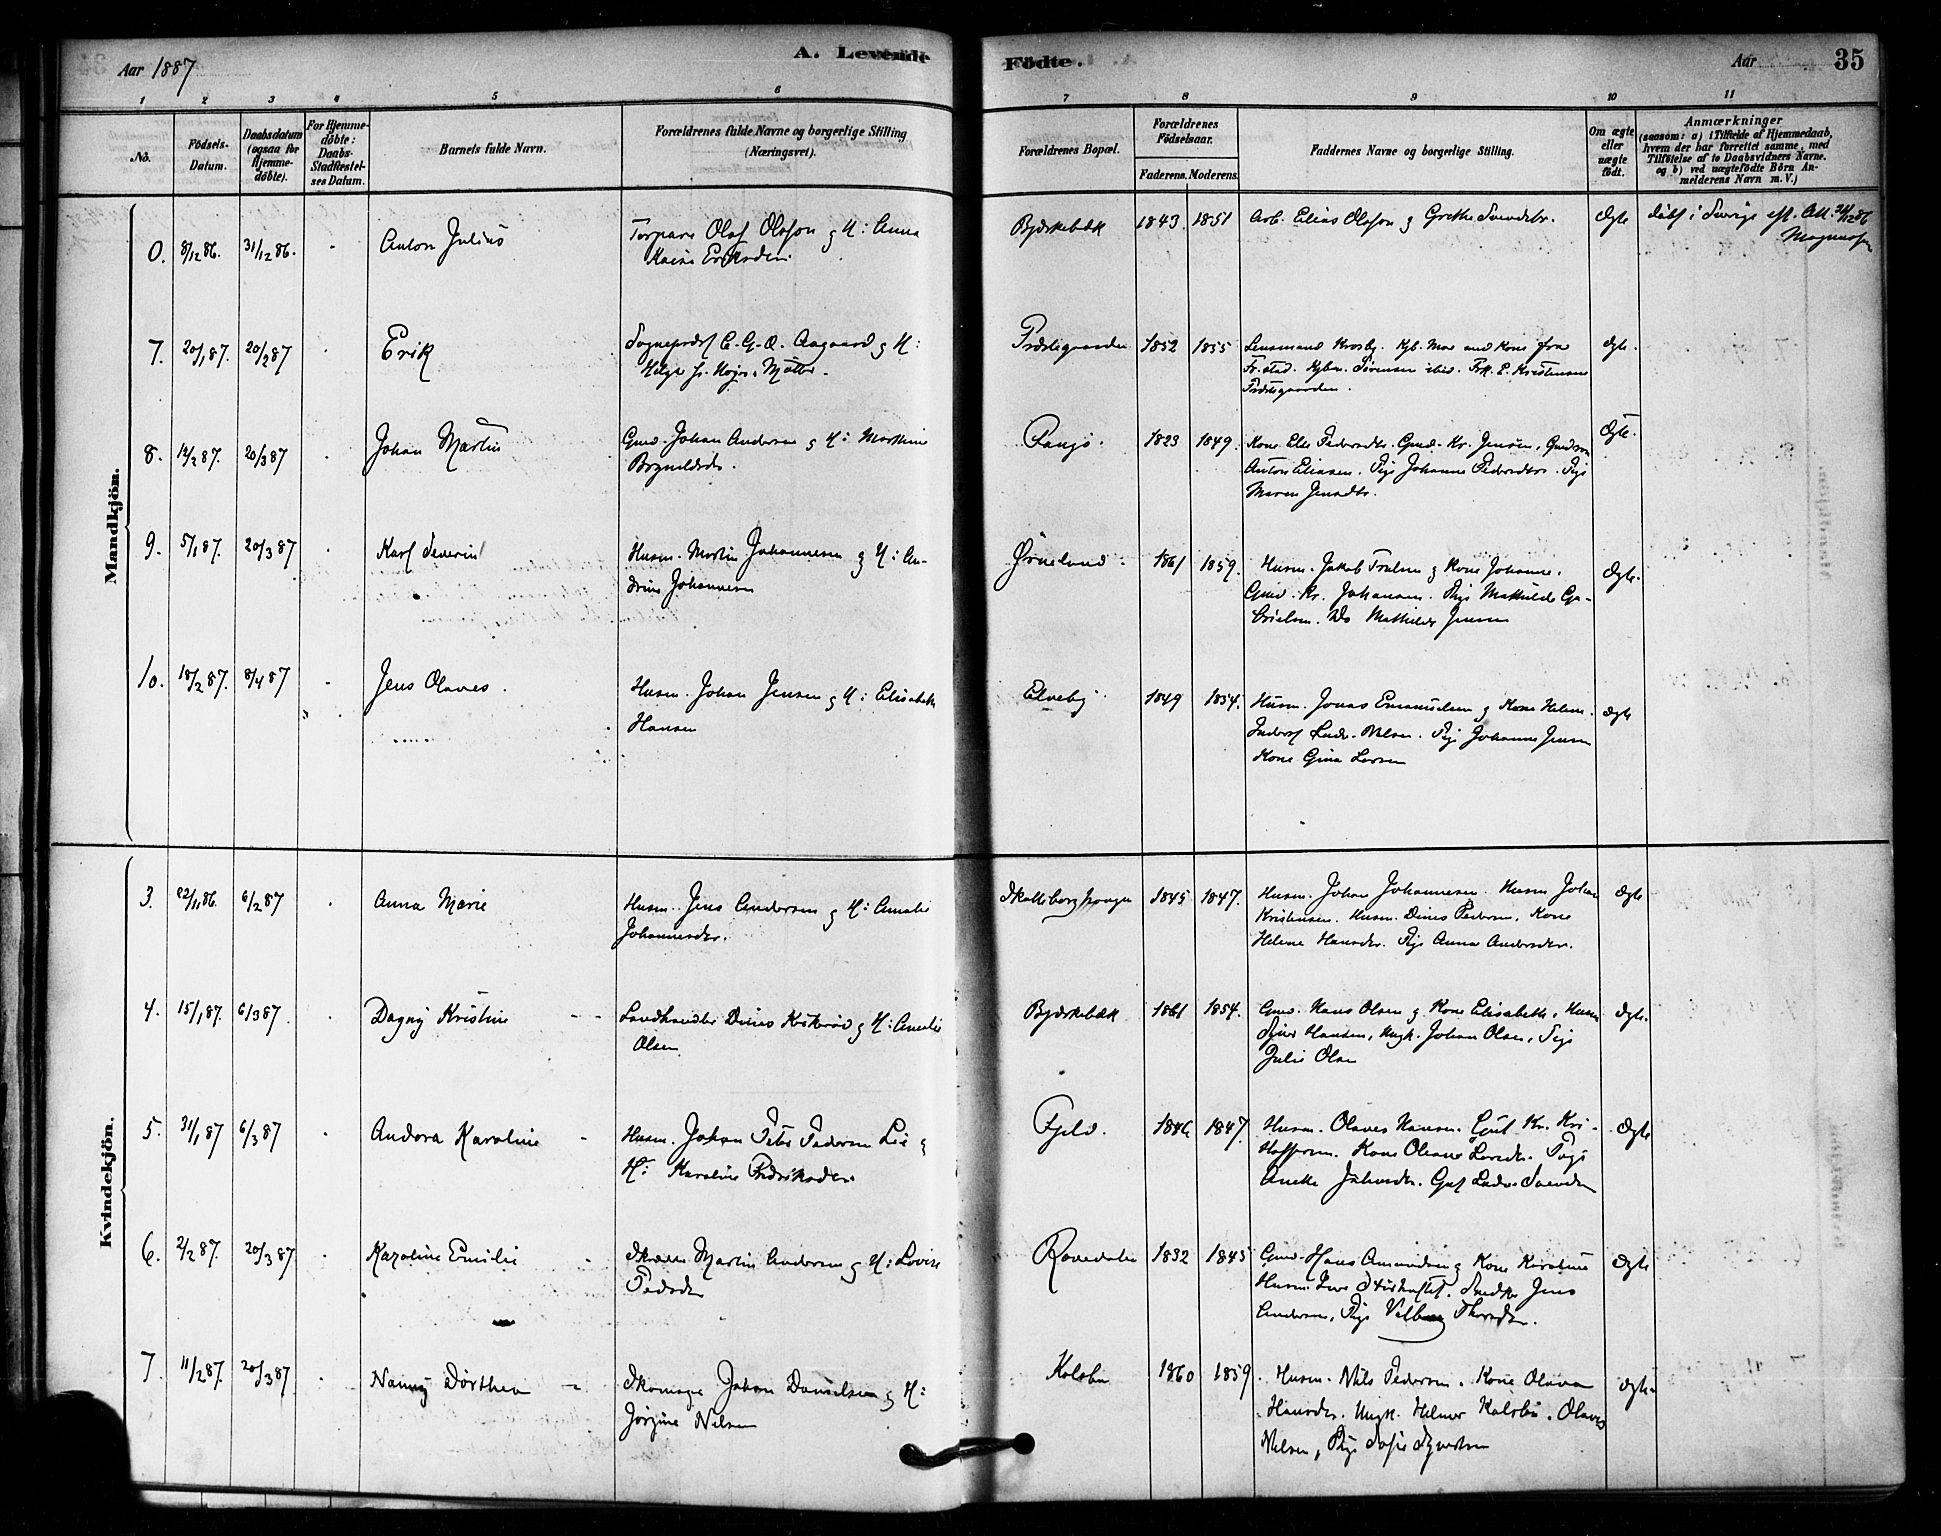 Aar 1887
A. Levende Födte.
Aar
35
1 2 3 4 5 6 7 8 9 10 11
No.
Födsels-Datum.
Daabsdatum (ogsaa for Hjemme-döbte).
For Hjemme-döbte: Daabs-Stadfæstel-ses Datum.
Barnets fulde Navn.
Forældrenes fulde Navne og borgerlige Stilling (Næringsvei).
Forældrenes Bopæl.
Forældrenes Födselsaar.
Faderens. Moderens.
Faddernes Navne og borgerlige Stilling.
Om ægte eller uægte födt.
Anmærkninger
(saasom: a) i Tilfælde af Hjemmedaab,
hvem der har forrettet samme, med
Tilföielse af to Daabsvidners Navne.
og b) ved uægtefödte Börn An-
melderens Navn m. V.)
Mandkjön.
0. 8/12 86. 31/12 86. Anton Julius
Torpare Olof Olofson og H: Anna
Kaisa
Bjærkebæk 1843 1851 Arb. Elias Olofson og Grethe Svendsdr. Ægte
döbt i Sverige
7. 20/1 87. 20/2 87 Erik
Sognepræst C. G. O. Aagaard og H:
Præstegaarden 1852 1855
Lensmand Krosby. Kjb. Moe med Kone fra
Fr.stad. Kjbm. Sörensen ibid. Frk. E. Kristensen
Præstegaarden. Ægte.
8. 12/2 87. 20/3 87 Johan Martin
Gmd. Johan Andersen og H: Marthine
Brynildsdr.
1823 1849.
Kone Elle Pedersdtr. Gmd. Kr. Jensen,
Anton Eliasen. Pige Johanne Pedersdtr. Pige
Maren Jensdtr. Ægte.
9. 5/1 87. 20/3 87 Karl Severin
Husm. Martin Johannesen og H: An-
drine Johannesen
1861 1859.
Husm. Jakob Trulsen og Kone Johanne.
Gmd. Kr. Johansen. Pige Mathilde Ga-
brielsen. Do Mathilde Jensen Ægte.
10. 18/2 87. 8/4 87 Jens Olaves.
Husm. Johan Jensen og H: Elisabeth
Hansen
Elveby 1849 1854.
Husm. Jonas Emanuelsen og Kone Helene.
Inderst Ludv. Nilsen. Pige Johanne Jensen
Kone Gina Larsen Ægte
Kvindekjön.
3. 22/11 86. 6/2 87 Anna Marie
Husm. Jens Andersen og H: Amalie
Johannesdr.
1845 1847.
Husm. Johan Johannesen. Husm Johan
Kristensen. Husm. Dines Pedersen. Kone
Helene Hansdr. Pige Anna Andersdr. Ægte
4. 15/1 87. 6/3 87 Dagny Kristine
Landhandler Dines Kikeröd og H: Amalie
Olsen.
Bjærkebæk 1861 1854.
Gmd. Hans Olsen og Kone Elisabeth. Husm
Hansen, Ungk. Johan Olsen, Pige
Julie Olsen Ægte.
5. 31/1 87 6/3 87 Andora Karoline
Husm. Johan Peter Pedersen Lie og
H: Karoline Fredriksdr.
Fjeld. 1846 1847.
Husm. Olaves Hansen. Gut Kr. Kri-
stoffersen. Kone Oleane Larsdr. Pige
Anette Johnsdr. Gut Ludv. Svendsen Ægte
6. 2/2 87. 20/3 87 Karoline Emilie
Skræder Martin Andersen og H: Lovise
Pedersdr
1832 1845
Gmd. Hans Amundsen og Kone Karoline
Husm. Jens. Snedker Jens
Andersen, Pige Thorsdtr. Ægte
7 11/2 87. 20/3 87 Nanny Dorthea
Skomager Johan Danielsen og H:
Jörgine Nilsen
Kolsbu 1860 1859.
Husm. Nils Pedersen. Kone Olava
Hansdr. Ungk. Helmer Kalsbu. Olaves
Nilsen, Pige Sofie Syvertsen Ægte.